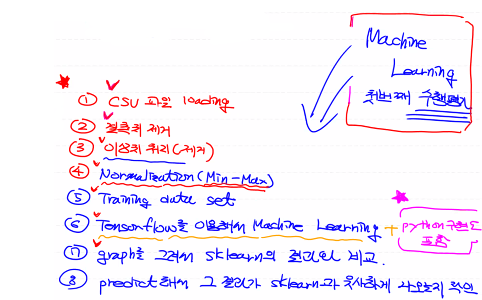 Machine
Learning
첫번째 수행평가
① CSV 파일 loading
② 결측치 제거
③ 이상치 처리(제거)
④ Normalization (Min-Max)
⑤ Training data set
⑥ Tensorflow를 이용해서 Machine Learning + python 구현도
포함
⑦ graph를 그려서 sklearn의 결과와 비교.
⑧ predict해서 그 결과가 sklearn과 유사하게 나오는지 확인